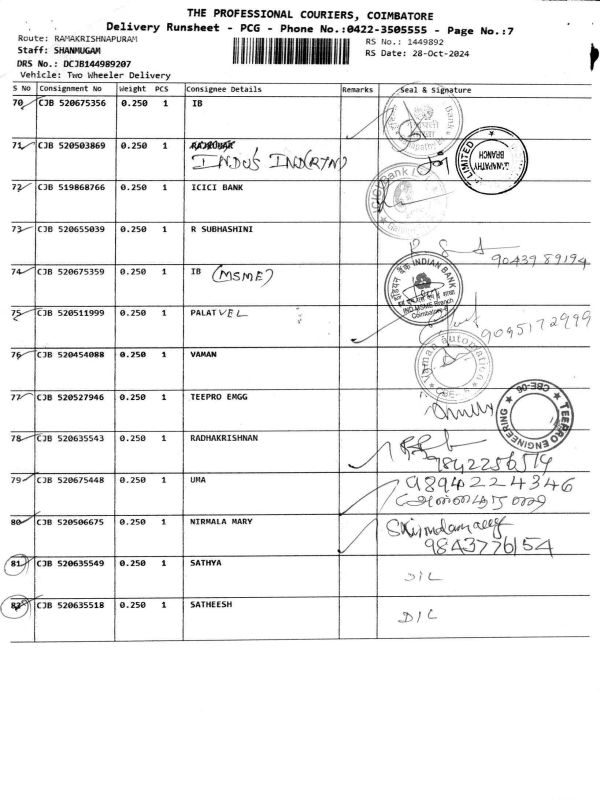 THE PROFESSIONAL COURIERS, COIMBATORE
Delivery Runsheet - PCG - Phone No.:0422-3505555 - Page No.:7
Route: RAMAKRISHNAPURAM
RS No.: 1449892
Staff: SHANMUGAM
RS Date: 28-Oct-2024
DRS No.: DCJB144989207
Vehicle: Two Wheeler Delivery
S No Consignment No Weight PCS Consignee Details Remarks Seal & Signature
70 CJB 520675356 0.250 1 IB
71 CJB 520503869 0.250 1
INDUS IND
LIMITED
BRANCH
72 CJB 519868766 0.250 1 ICICI BANK
ICICI Bank
73 CJB 520655039 0.250 1 R SUBHASHINI
9043989194
74 CJB 520675359 0.250 1 IB (MSME)
इंडियन बैंक INDIAN BANK
IND MSME Branch
Coimbatore
75 CJB 520511999 0.250 1 PALATVEL
9095172999
76 CJB 520454088 0.250 1 VAMAN
Vaman automation
77 CJB 520527946 0.250 1 TEEPRO EMGG
TEEPRO ENGINEERING
CBE-06
78 CJB 520635543 0.250 1 RADHAKRISHNAN
9842256514
79 CJB 520675448 0.250 1 UMA
9894224346
80 CJB 520506675 0.250 1 NIRMALA MARY
9843776154
81 CJB 520635549 0.250 1 SATHYA
D/L
82 CJB 520635518 0.250 1 SATHEESH
D/L